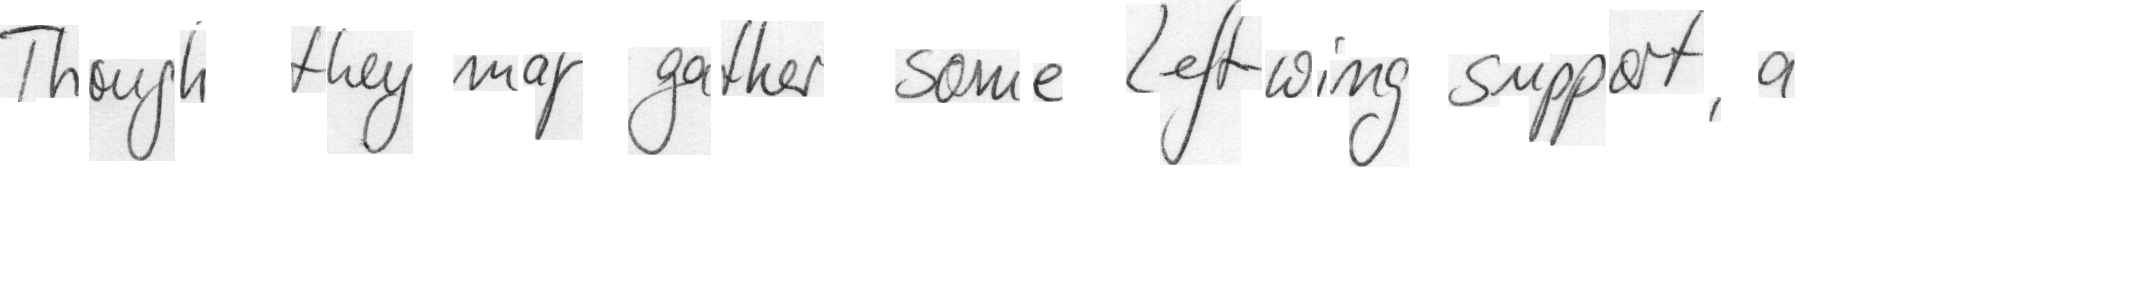 Though they may gather some Left-wing support, a